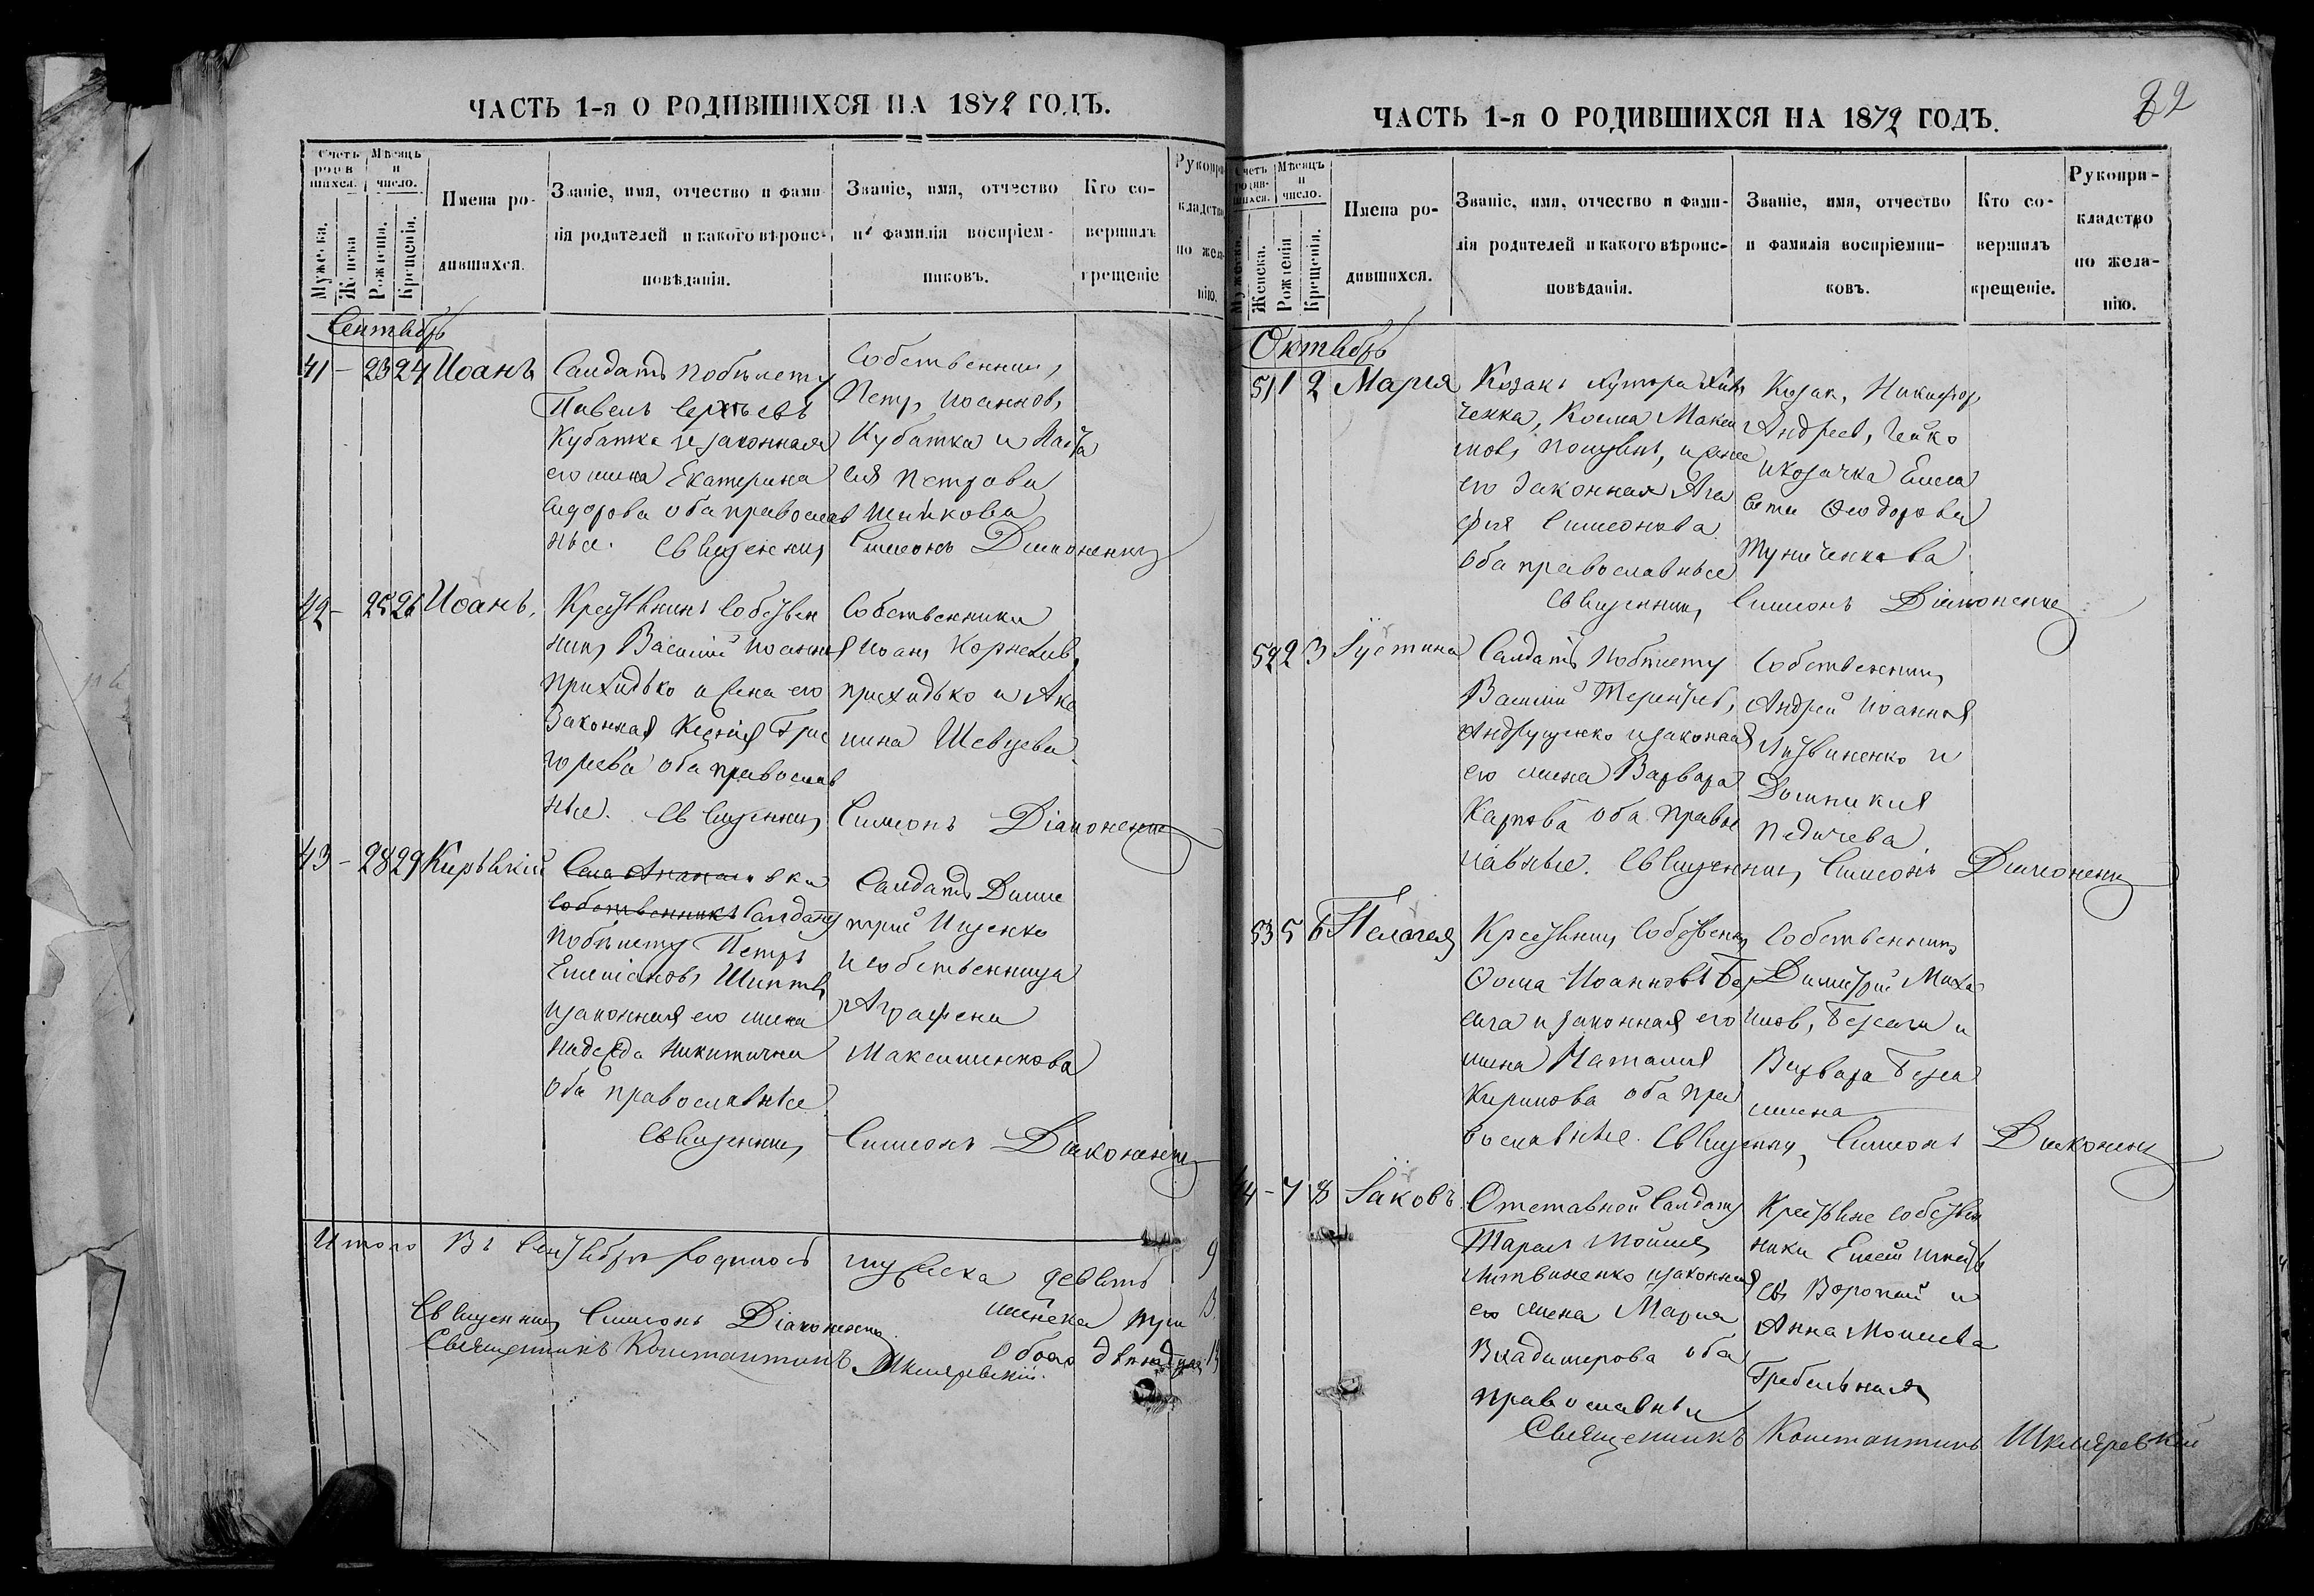 ЧАСТЬ 1-я О РОДИВШИХСЯ НА 1872 ГОДЪ.
Счетъ родившихся.
Мѣсяцъ и число.
Мужеска.
Женска
Рожденія.
Крещенія.
Имена родившихся.
Званіе, имя, отчество и фами-
лія родителей и какого вѣроис-
повѣданія.
Званіе, имя, отчество
и фамилія воспріем-
никовъ.
Кто со-
вершилъ
крещеніе
Рукопри-
кладство
по жела-
нію.
Сентябрь
41 – 23 24 Иоанъ
Салдатъ побилету
Павелъ Сергѣевъ
Кубатка и законная
его жена Екатерина
Сидорова оба православ
ные.
Собственник,
Петр, Иоаннов,
Кубатка и
Петрова
Священник, Симеонъ Діаконенко
42 – 25 26 Иоанъ,
Крестянинъ Собствен
ник, Василий Иоаннов
Прихидько и жена его
Законная Ксения Гри
горьева оба православ
ные.
Собственники
Иоан, Корнелиев,
Прихидько и Аку
лина Шевцева
Священник, Симеонъ Діаконенко
43 – 28 29
Собственникъ Салдатъ
побилету Петръ
и законная его жена
Надежда Никитична
оба православные
Салдатъ Дими
трий Ищенко
и собственница
Аграфена
Максименкова
Священник, Симеонъ Діаконенко
Итого Въ Сентябрѣ родилось мужеска девять 9
женска три 3
обоего двѣнадцать 12
Священник, Симеонъ Діаконенко
Священникъ Константинъ Шкляревскій.
22
ЧАСТЬ 1-я О РОДИВШИХСЯ НА 1872 ГОДЪ.
Счетъ родив-
шихся.
Мѣсяцъ и число.
Мужеска.
Женска.
Рожденія
Крещенія.
Имена ро-
дившихся.
Званіе, имя, отчество и фами-
лія родителей и какого вѣроис-
повѣданія.
Званіе, имя, отчество
и фамилія воспріемни-
ковъ.
Кто со-
вершилъ
крещеніе.
Рукопри-
кладство
по жела-
нію.
Октябрь
51 1 2 Мария
Козакъ хутора
Косма Макси
мов, и жена
его Законная Ага
фия Симеонова
оба православные
Козак, Никифор,
Андреев,
и козачка Елиса
вета Феодорова
Священник, Симеонъ Діаконенко
52 2 3 Іустина
Салдатъ Побилету
Василий Терентьев,
Андрущенко и законная
его жена Варвара
Карпова оба правос
лавные.
Собственник,
Андрей Иоаннов
Литвиненко и
Домникия
Священник, Симеонъ Діаконенко
53 5 6 Пелагея
Крестянин, Собственник
Фома Иоанновъ
и законная его
жена Наталия
Кирилова оба пра
вославные.
Собственникъ
Димитрий Миха
илов, и
Варвара
Священник, Симеонъ Діаконенко
44 – 7 8 Іаковъ.
Отставной Салдатъ
Тарас Моисеев
Литвиненко и законная
его жена Мария
Владимирова оба
православны
Крестьяне собствен
ники
и
Анна Моисеева
Гребельная
Священникъ Константинъ Шкляревскій